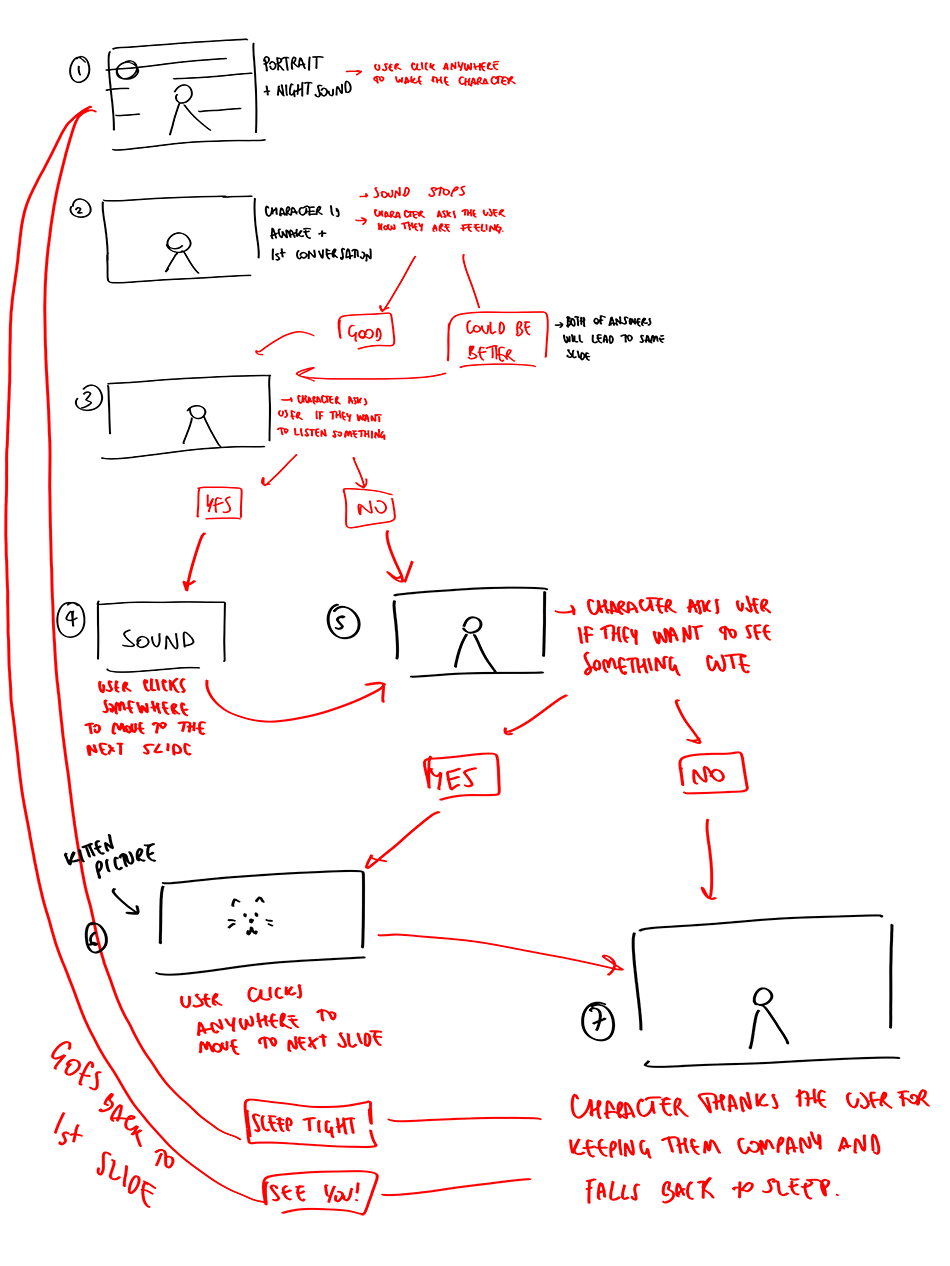 1
PORTRAIT
+ NIGHT SOUND
→ USER CLICK ANYWHERE
TO WAKE THE CHARACTER
2
CHARACTER IS
AWAKE +
1st CONVERSATION
→ SOUND STOPS
→ CHARACTER ASKS THE USER
HOW THEY ARE FEELING.
GOOD
COULD BE
BETTER
→ BOTH OF ANSWERS
WILL LEAD TO SAME
SLIDE
3
→ CHARACTER ASKS
USER IF THEY WANT
TO LISTEN SOMETHING
YES
NO
4
SOUND
USER CLICKS
SOMEWHERE
TO MOVE TO THE
NEXT SLIDE
5
→ CHARACTER ASKS USER
IF THEY WANT TO SEE
SOMETHING CUTE
YES
NO
KITTEN
PICTURE
6
USER CLICKS
ANYWHERE TO
MOVE TO NEXT SLIDE
7
CHARACTER THANKS THE USER FOR
KEEPING THEM COMPANY AND
FALLS BACK TO SLEEP.
SLEEP TIGHT
SEE YOU!
GOES BACK TO
1st SLIDE